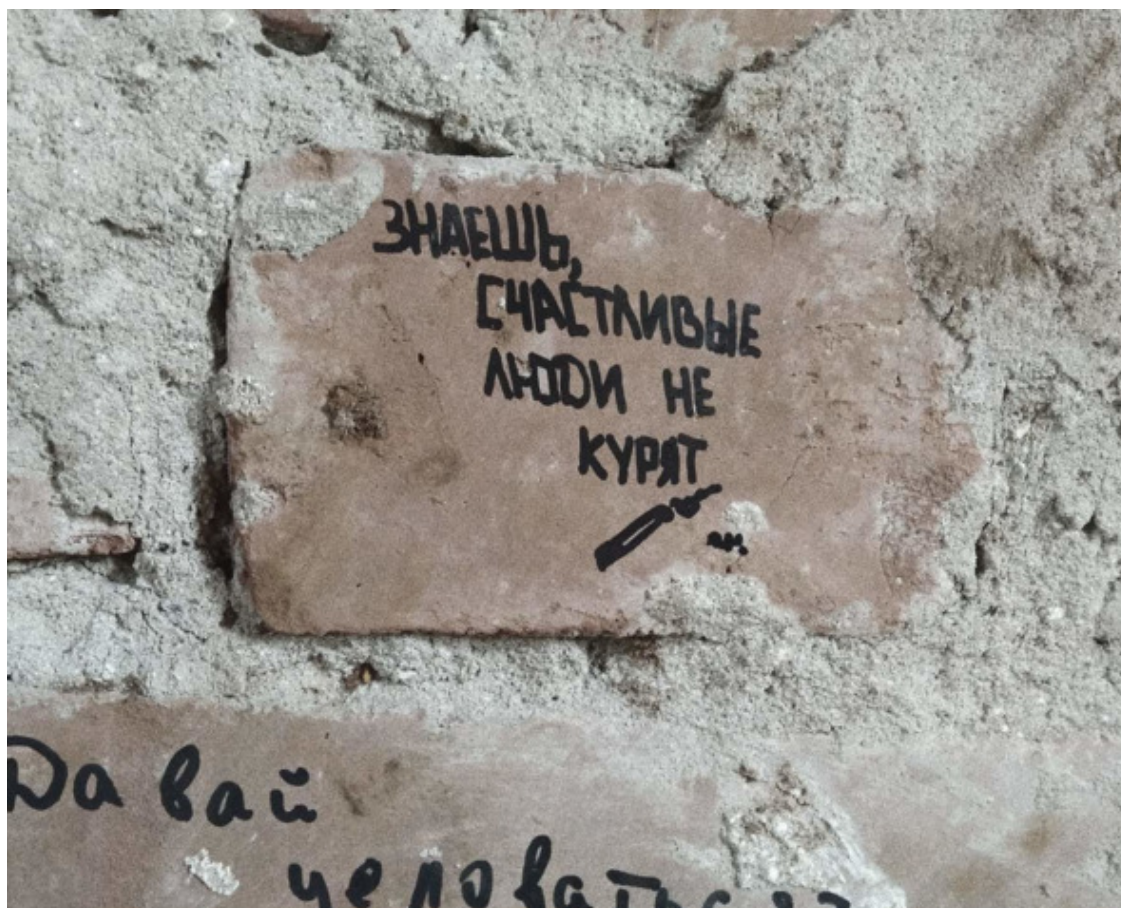 ЗНАЕШЬ,
СЧАСТЛИВЫЕ
ЛЮДИ НЕ
КУРЯТ
Давай
целоваться?